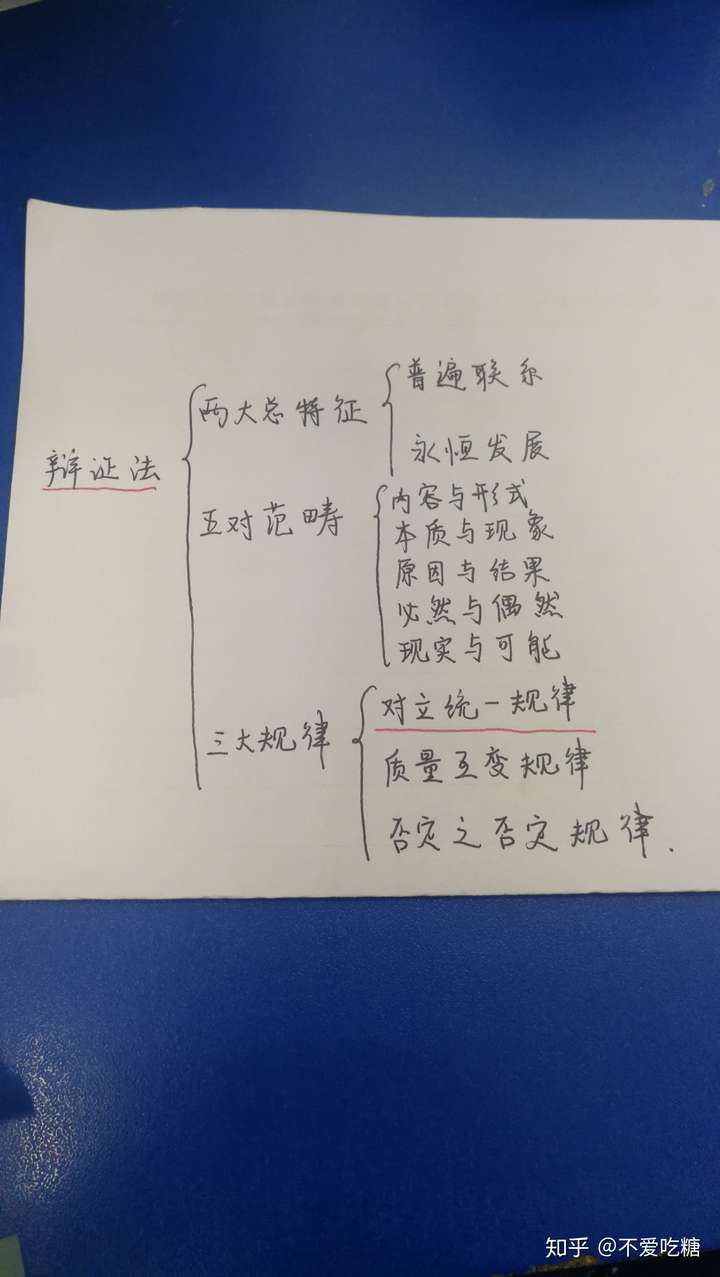 辩证法
两大总特征
普遍联系
永恒发展
五对范畴
内容与形式
本质与现象
原因与结果
必然与偶然
现实与可能
三大规律
对立统一规律
质量互变规律
否定之否定规律.
知乎 @不爱吃糖